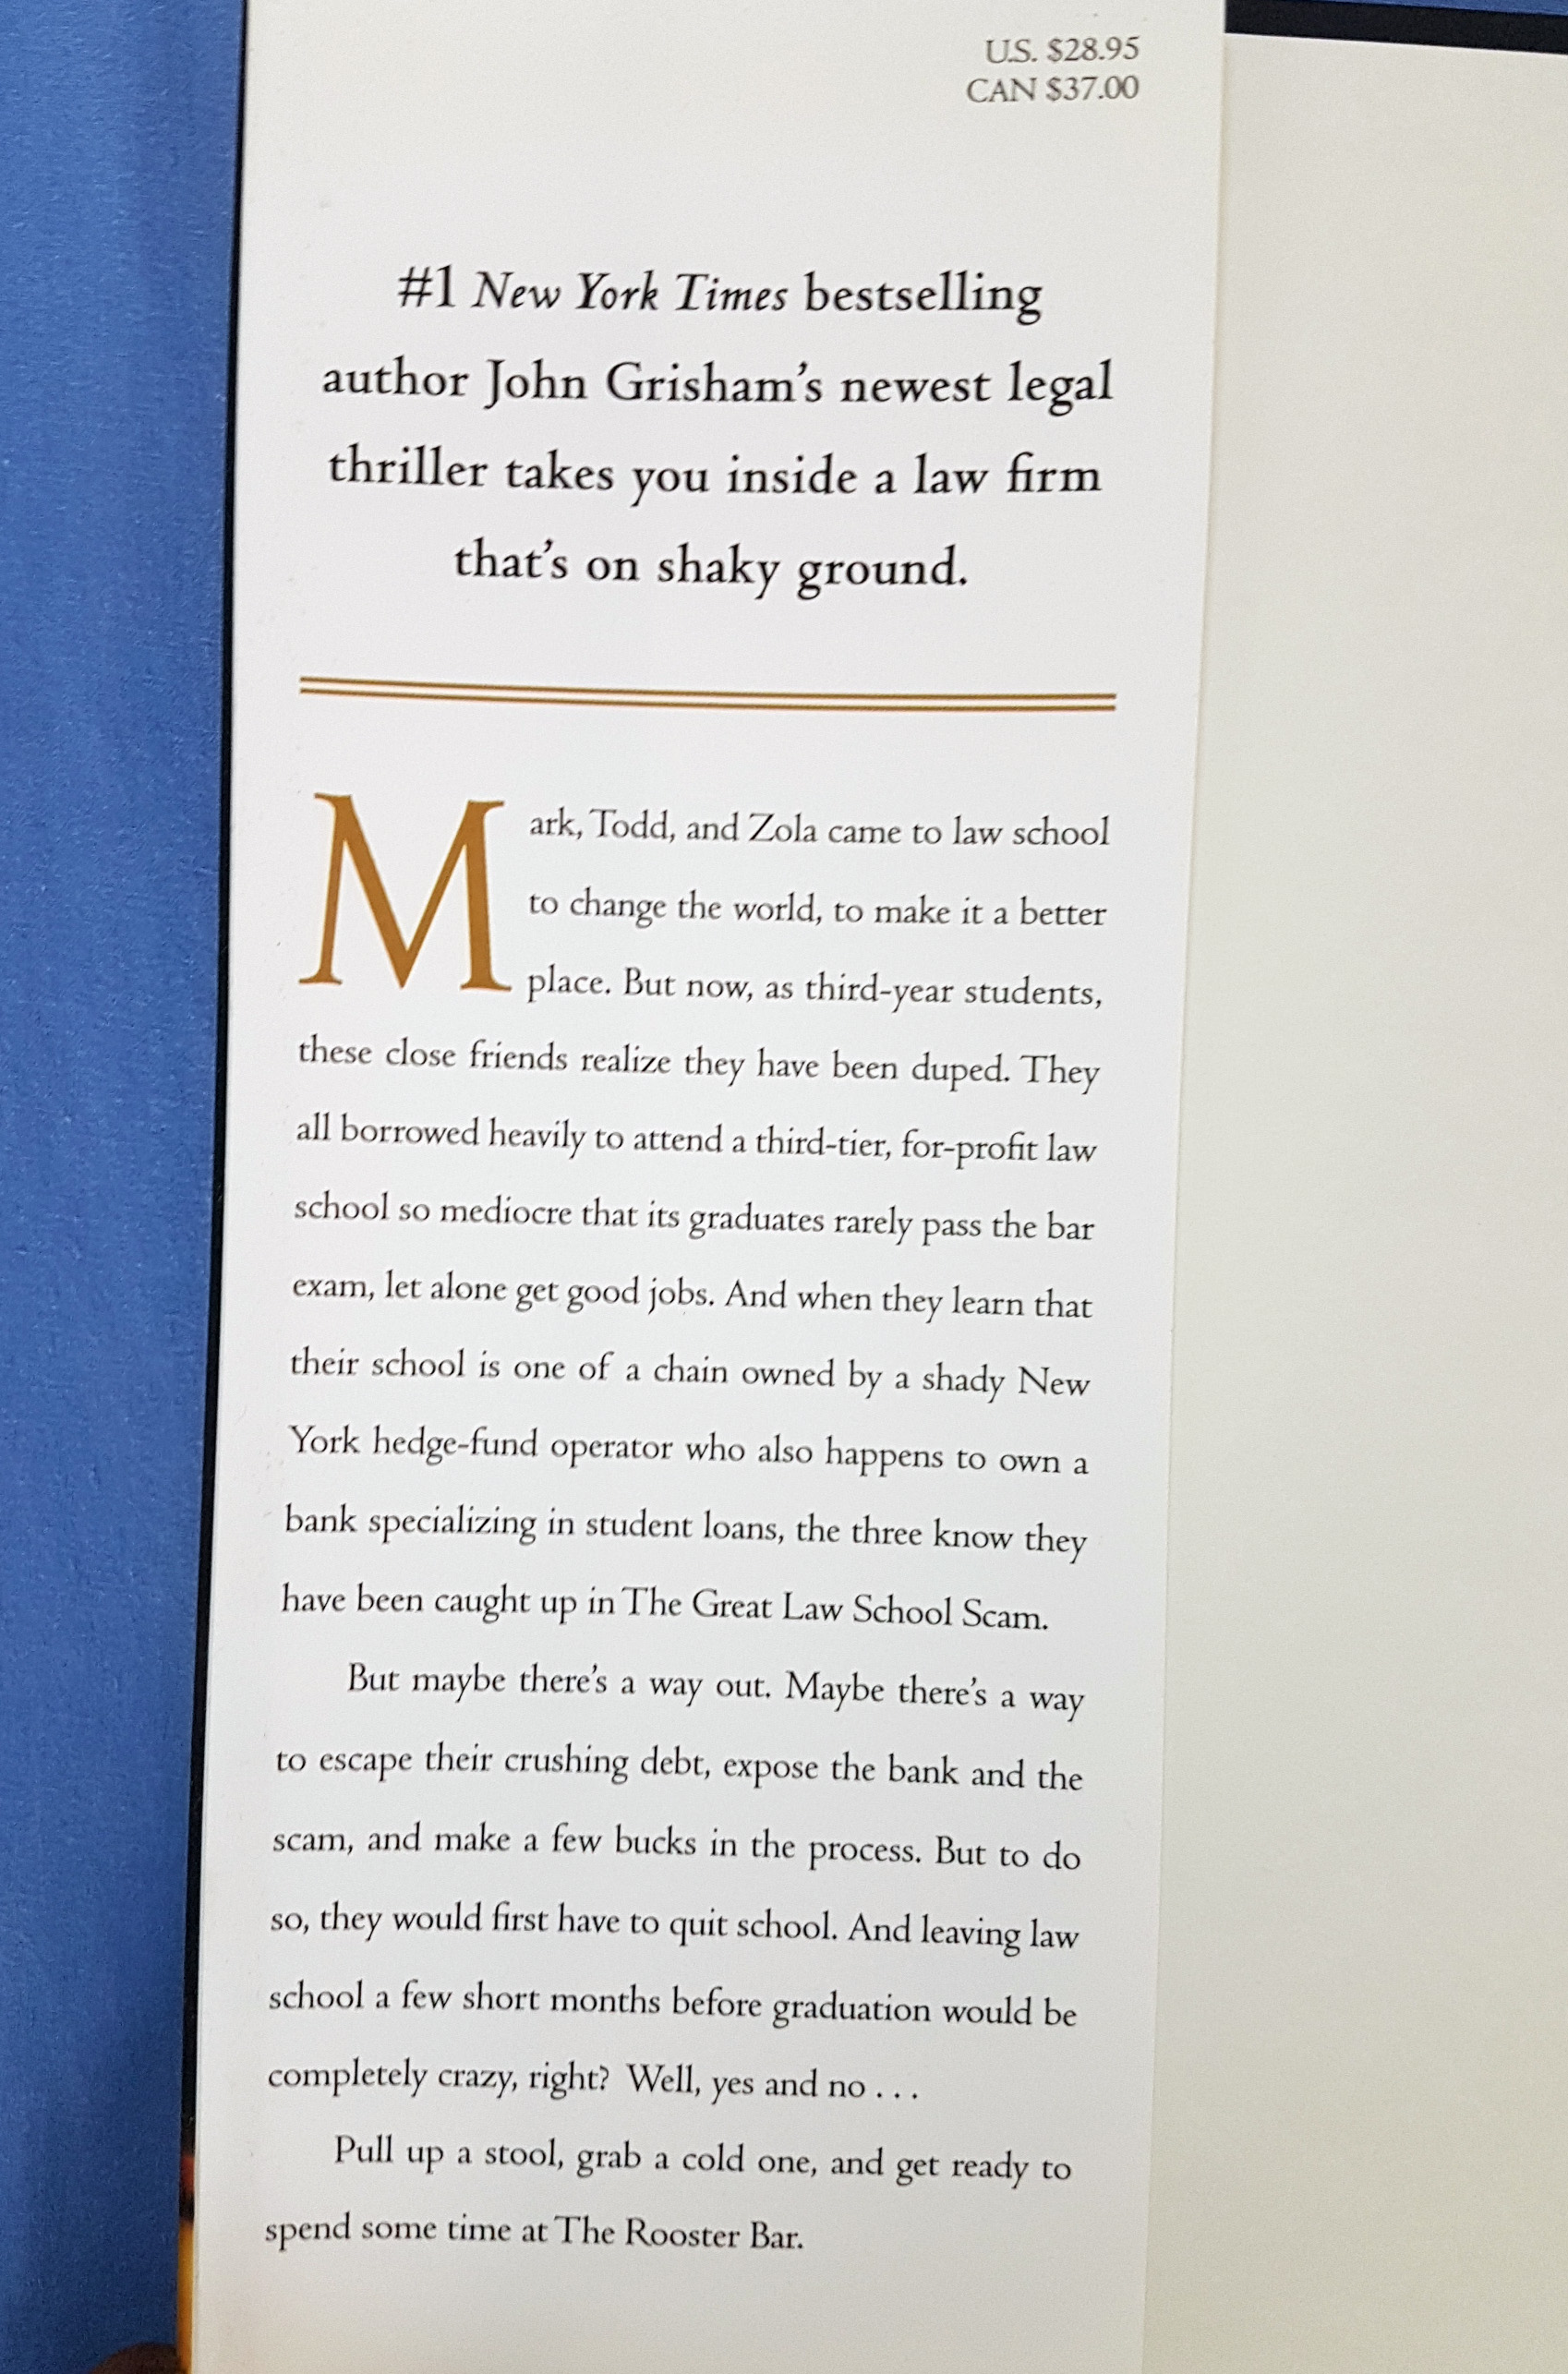 U.S. $28.95
CAN $37.00
#1 New York Times bestselling
author John Grisham's newest legal
thriller takes you inside a law firm
that's on shaky ground.
Mark, Todd, and Zola came to law school
to change the world, to make it a better
place. But now, as third-year students,
these close friends realize they have been duped. They
all borrowed heavily to attend a third-tier, for-profit law
school so mediocre that its graduates rarely pass the bar
exam, let alone get good jobs. And when they learn that
their school is one of a chain owned by a shady New
York hedge-fund operator who also happens to own a
bank specializing in student loans, the three know they
have been caught up in The Great Law School Scam.
But maybe there's a way out. Maybe there's a way
to escape their crushing debt, expose the bank and the
scam, and make a few bucks in the process. But to do
so, they would first have to quit school. And leaving law
school a few short months before graduation would be
completely crazy, right? Well, yes and no . . .
Pull up a stool, grab a cold one, and get ready to
spend some time at The Rooster Bar.